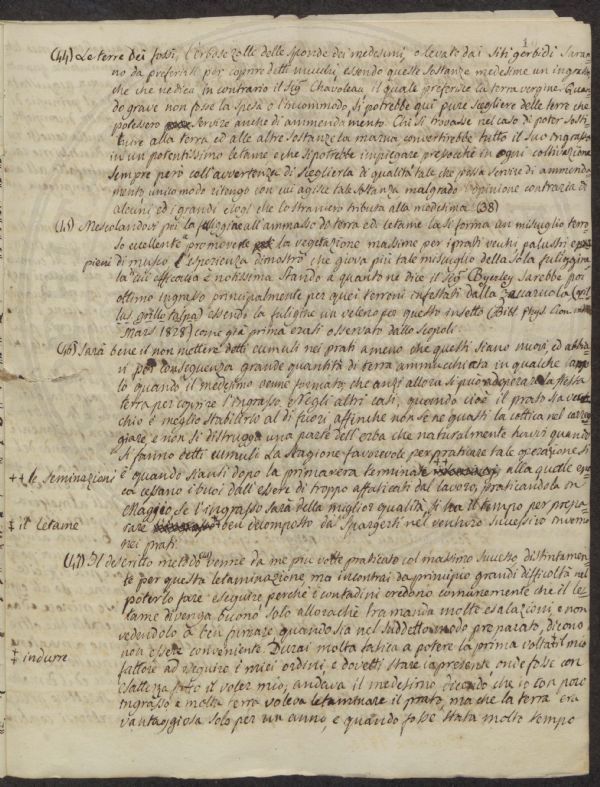 (44) Le terre dei fossi, l'erbose zolle delle sponde dei medesimi, o levate dai siti gerbidi saran-
no da preferirsi per coprire detti mucchi, essendo queste sostanze medesime un ingrasso
che che ne dica in contrario il Sig. Chavoleau il quale preferisce la terra vergine. Quan-
do grave non fosse la spesa o l'incommodo, si potrebbe qui pure scegliere delle terre che
potessero servire anche di ammendamento. Chi si trovasse nel caso di poter sosti-
tuire alla terra ed alle altre sostanze la marna convertirebbe tutto il suo ingrasso
in un potentissimo letame e che si potrebbe impiegare pressoché in ogni coltivazione
sempre però coll'avvertenza di sceglierla di qualità tale che possa servire di ammenda-
mento, unico modo ritengo con cui agisce tale sostanza malgrado l'opinione contraria di
alcuni ed i grandi elogi che lo straniero tributa alla medesima. (38)
(45) Mescolandovi poi la fuliggine all'ammasso di terra ed letame la si forma un miscuglio terro-
so eccellente a promovere la vegetazione massime per i prati vecchi palustri e
pieni di musco. L'esperienza dimostrò che giova più tale miscuglio della sola fuliggine
la cui efficacia è notissima. Stando a quanto ne dice il Sig. Byerley sarebbe poi
ottimo ingrasso principalmente per quei terreni infestati dalla zuccaruola
grillo talpa) essendo la fuligine un veleno per questo insetto (Bibl. Phys.
Mars 1828) come già prima erasi osservato dallo Scopoli.
(46) Sarà bene il non mettere detti cumuli nei prati a meno che questi siano nuovi ed abbia-
vi per conseguenza grande quantità di terra ammucchiata in qualche
lo quando il medesimo venne formato, che anzi allora si può adoperare la stessa
terra per coprire l'ingrasso. Negli altri casi, quando cioè il prato sia vec-
chio è meglio stabilirlo al di fuori, affinche non se ne guasti la cottica nel carreg-
giare, e non si distrugga una parte dell'erba che naturalmente havvi quando
si fanno detti cumuli. La stagione favorevole per praticare tale operazione si
è quando siansi dopo la primavera terminate ++ alla quale epo-
ca cessano i buoi dall'essere di troppo affaticati dal lavoro, praticandola in
++ le seminazioni
Maggio se l'ingrasso sarà della miglior qualità, si ha il tempo per prepa-
rare ‡ ben decomposto da spargersi nel venturo successivo inverno
‡ il letame
nei prati.
(47) Il descritto metodo venne da me più volte praticato col massimo successo distintamen-
te per questa letaminazione, ma incontrai da principio grandi difficoltà nel
poterlo fare eseguire perché i contadini credono comunemente che il le-
tame divenga buono solo alloraché tramanda molte esalazioni, e non
vedendolo a ben fumare quando sia nel suddetto modo preparato, dicono
non essere conveniente. Durai molta fatica a potere la prima volta ‡ il mio
‡ indurre
fattore ad eseguire i miei ordini e dovetti stare io presente, onde fosse con
esattezza fatto il voler mio, andava il medesimo, dicendo, che io con poco
ingrasso e molta terra voleva letaminare il prato, ma che la terra era
vantaggiosa solo per un anno, e quando fosse stata molto tempo